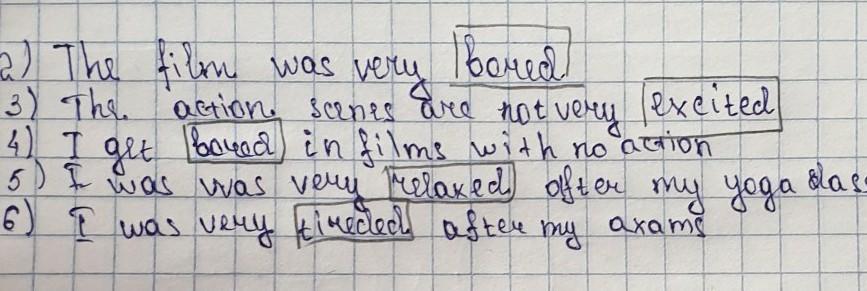 2) The film was very bored
3) The. action. scenes are not very excited
4) I get bored in films with no action
5) I was was very relaxed after my yoga class
6) I was very tireded after my axams